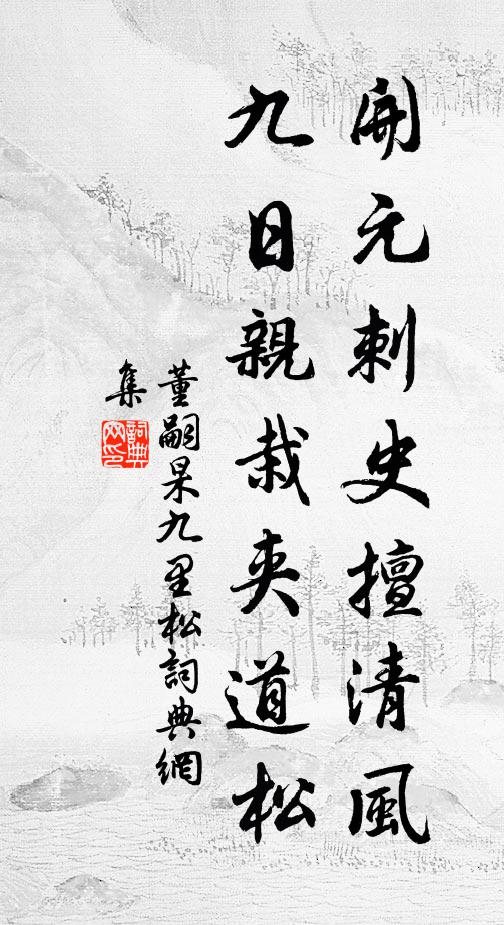 開元刺史擅清風
九日親栽夾道松
董嗣杲九里松詞典網
集
詞典網印